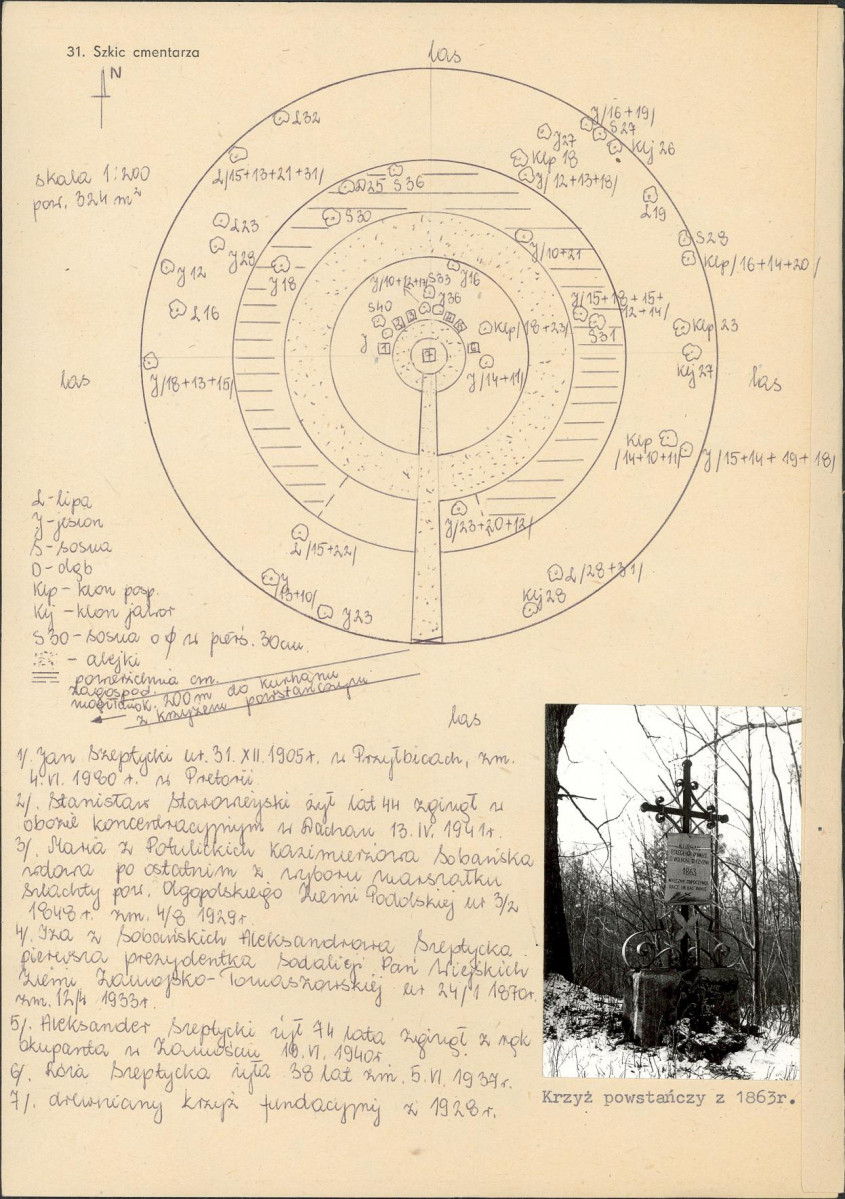 31. Szkic cmentarza
N
las
skala 1:200
pow. 324 m²
L32
L/15+13+21+31/
D25
S36
S30
L23
J28
J12
J18
L16
J/18+13+15/
las
J/16+19/
S27
J27
Klj 26
Klp 18
J/12+13+18/
L19
S28
Klp/16+14+20/
J/10+21
J/15+18+15+
12+14/
S31
Klp 23
Klj 27
las
J16
S33
J36
S40
J
1
2
3
6
7
Klp/18+23/
J/14+11/
Klp
/14+10+11/
J/15+14+19+18/
J/23+20+12/
L/15+22/
J
/13+10/
J23
L/28+31/
Klj 28
L-lipa
J-jesion
S-sosna
D-dąb
Klp-klon posp.
Klj-klon jawor
S30-sosna o ϕ w pierś. 30cm.
- alejki
powierzchnia cm.
zagospod.
200m do kurhanu
z krzyżem powstańczym
las
1/. Jan Szeptycki ur. 31.XII.1905r. w Przyłbicach, zm.
4.VI.1980r. w Pretorii
2/. Stanisław Starowieyski żył lat 44 zginął w
obozie koncentracyjnym w Dachau 13.IV.1941r.
3/. Maria z Potulickich Kazimierzowa Sobańska
wdowa po ostatnim z wyboru marszałku
szlachty pow. Olgopolskiego Ziemi Podolskiej ur 3/2
1848r. zm. 4/8 1929r.
4/. Iza z Sobańskich Aleksandrowa Szeptycka
pierwsza prezydentka Sodalicji Pań Wiejskich
Ziemi Zamojsko-Tomaszowskiej ur 24/1 1870r.
zm. 12/4 1933r.
5/. Aleksander Szeptycki żył 74 lata zginął z rąk
okupanta w Zamościu 19.VI.1940r
6/. Róża Szeptycka żyła 38 lat zm. 5.VI.1937r.
7/. drewniany krzyż fundacyjny z 1928r.
1863
Krzyż powstańczy z 1863r.